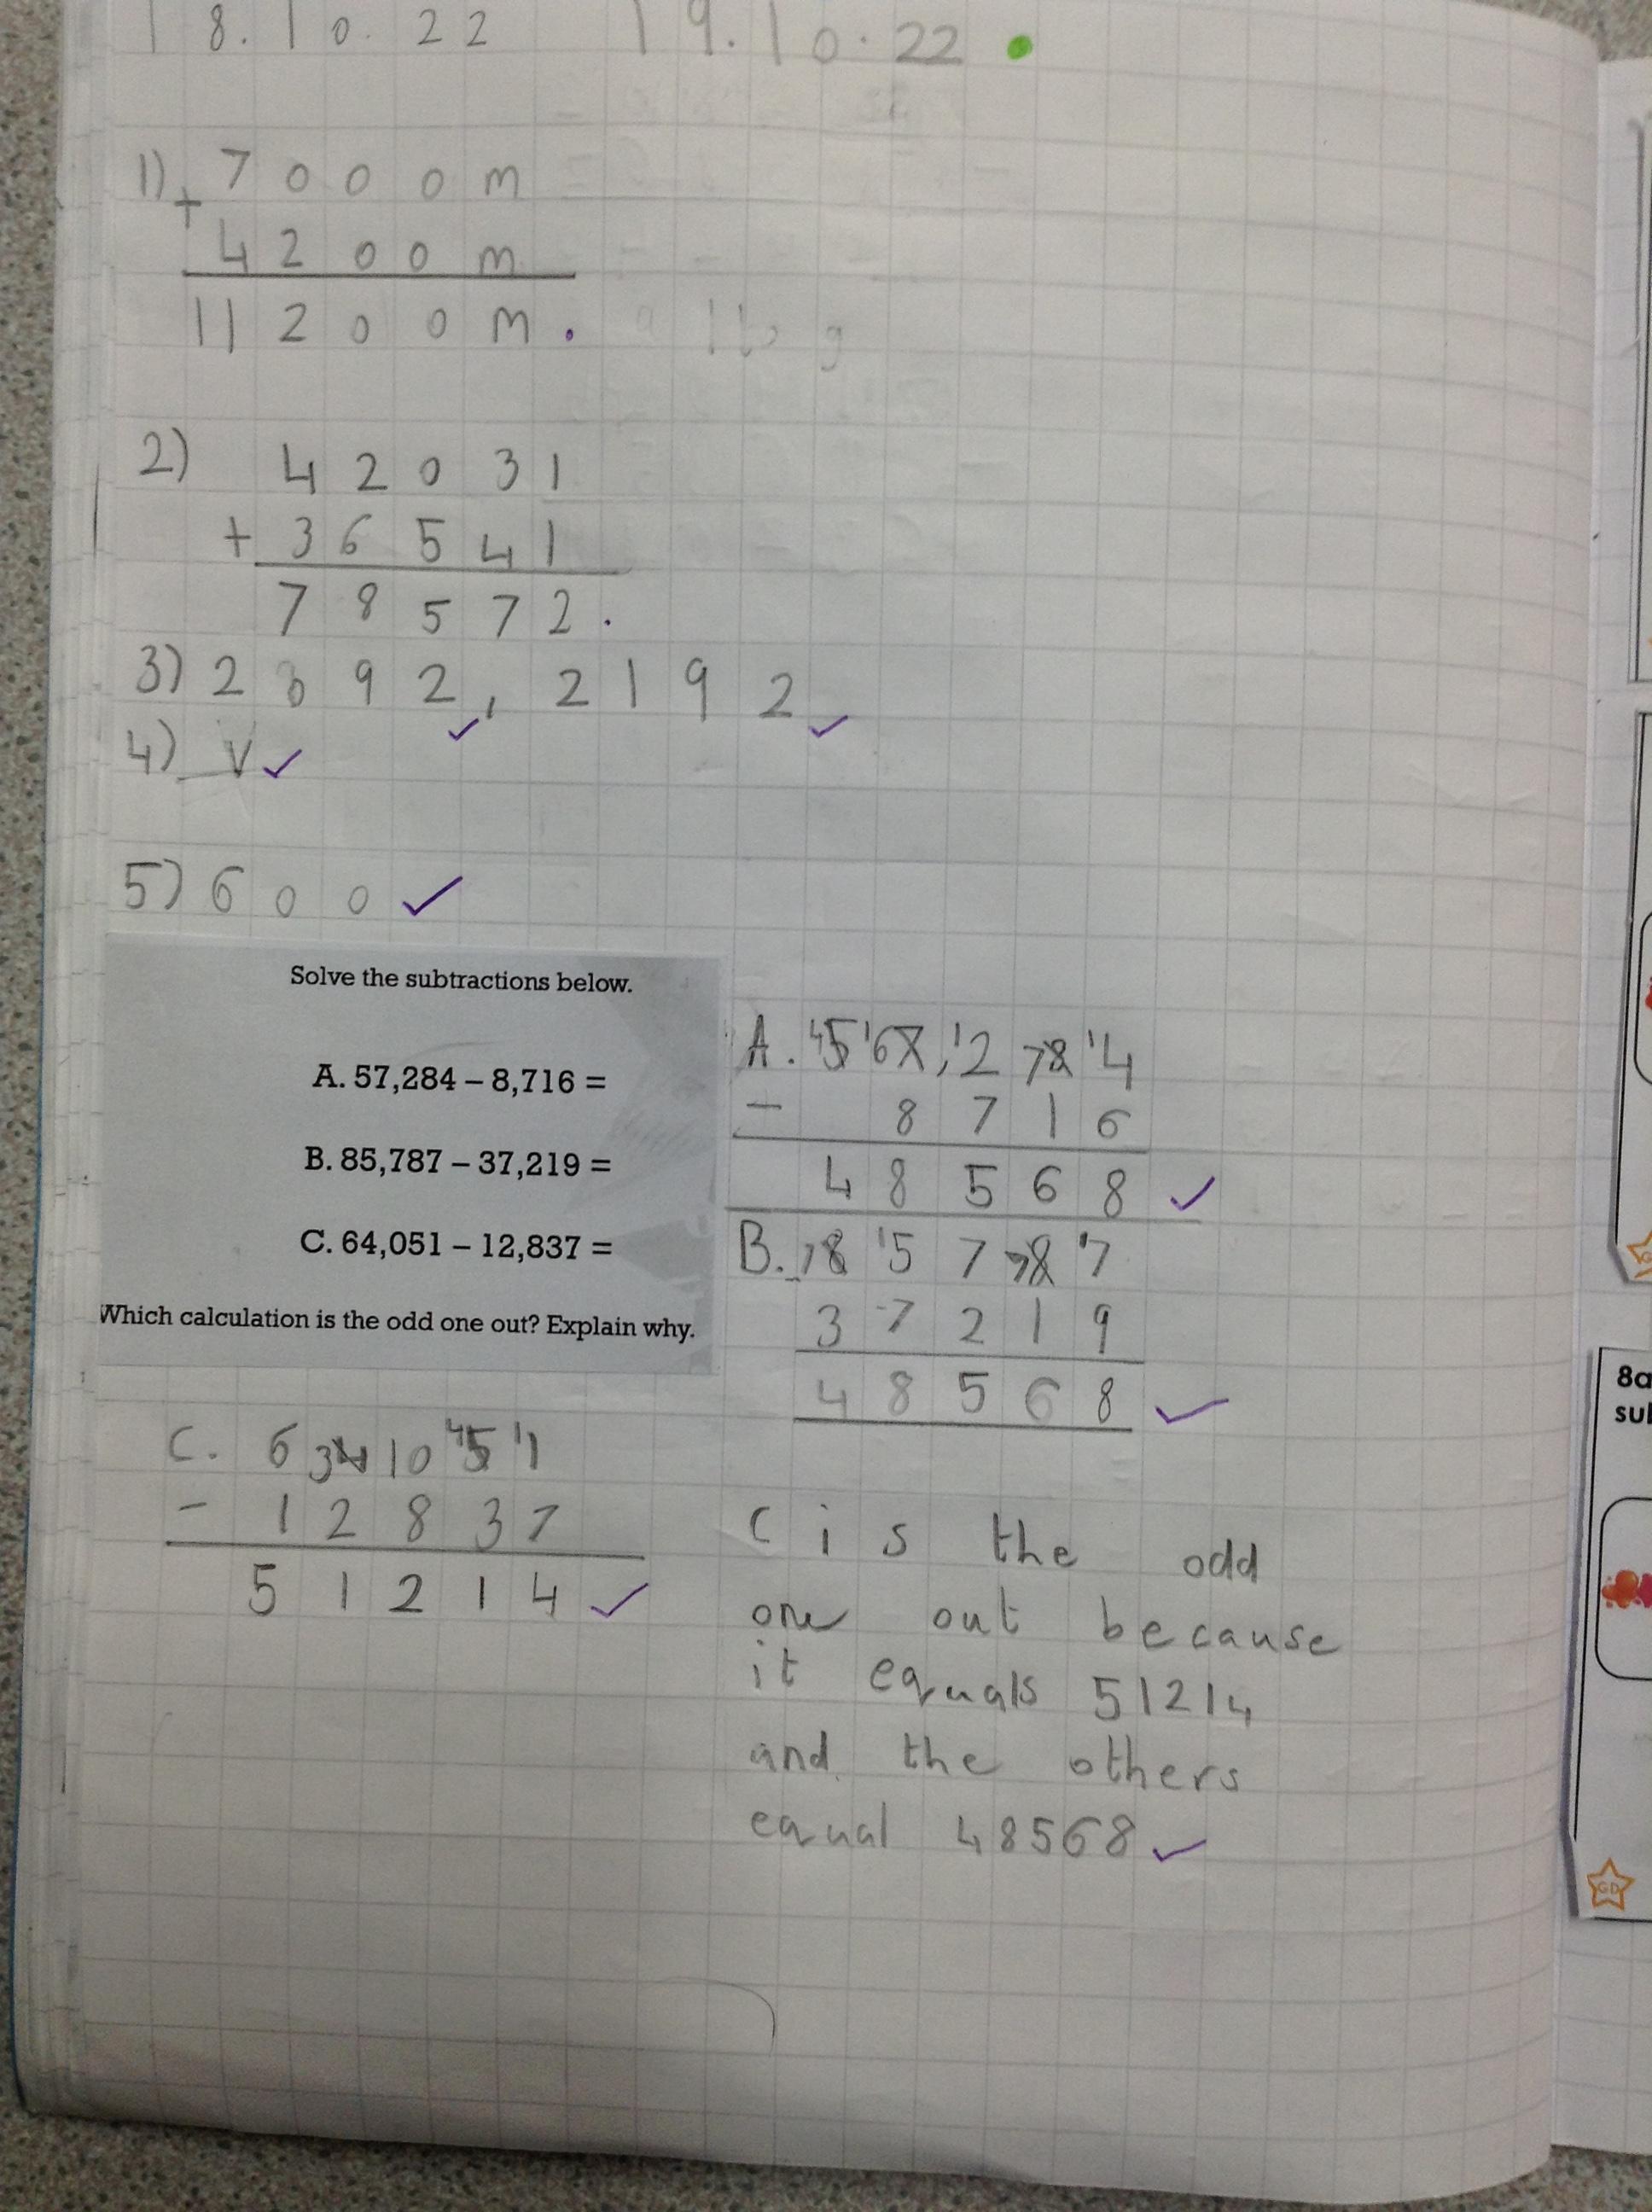 18.10.22 19.10.22
1) 7000m
+ 4200m
11200m.
2) 42031
+ 36541
78572.
3) 2892, 2192
4) V
5) 600
Solve the subtractions below.
A. 57,284 – 8,716 =
B. 85,787 – 37,219 =
C. 64,051 – 12,837 =
Which calculation is the odd one out? Explain why.
A. 45 167, 12 78 14
- 8716
48568
B. 78 15 7 78 17
37219
48568
C. 6 34 10 45 11
- 12837
51214
C is the odd
one out because
it equals 51214
and the others
equal 48568
8a
su
GD